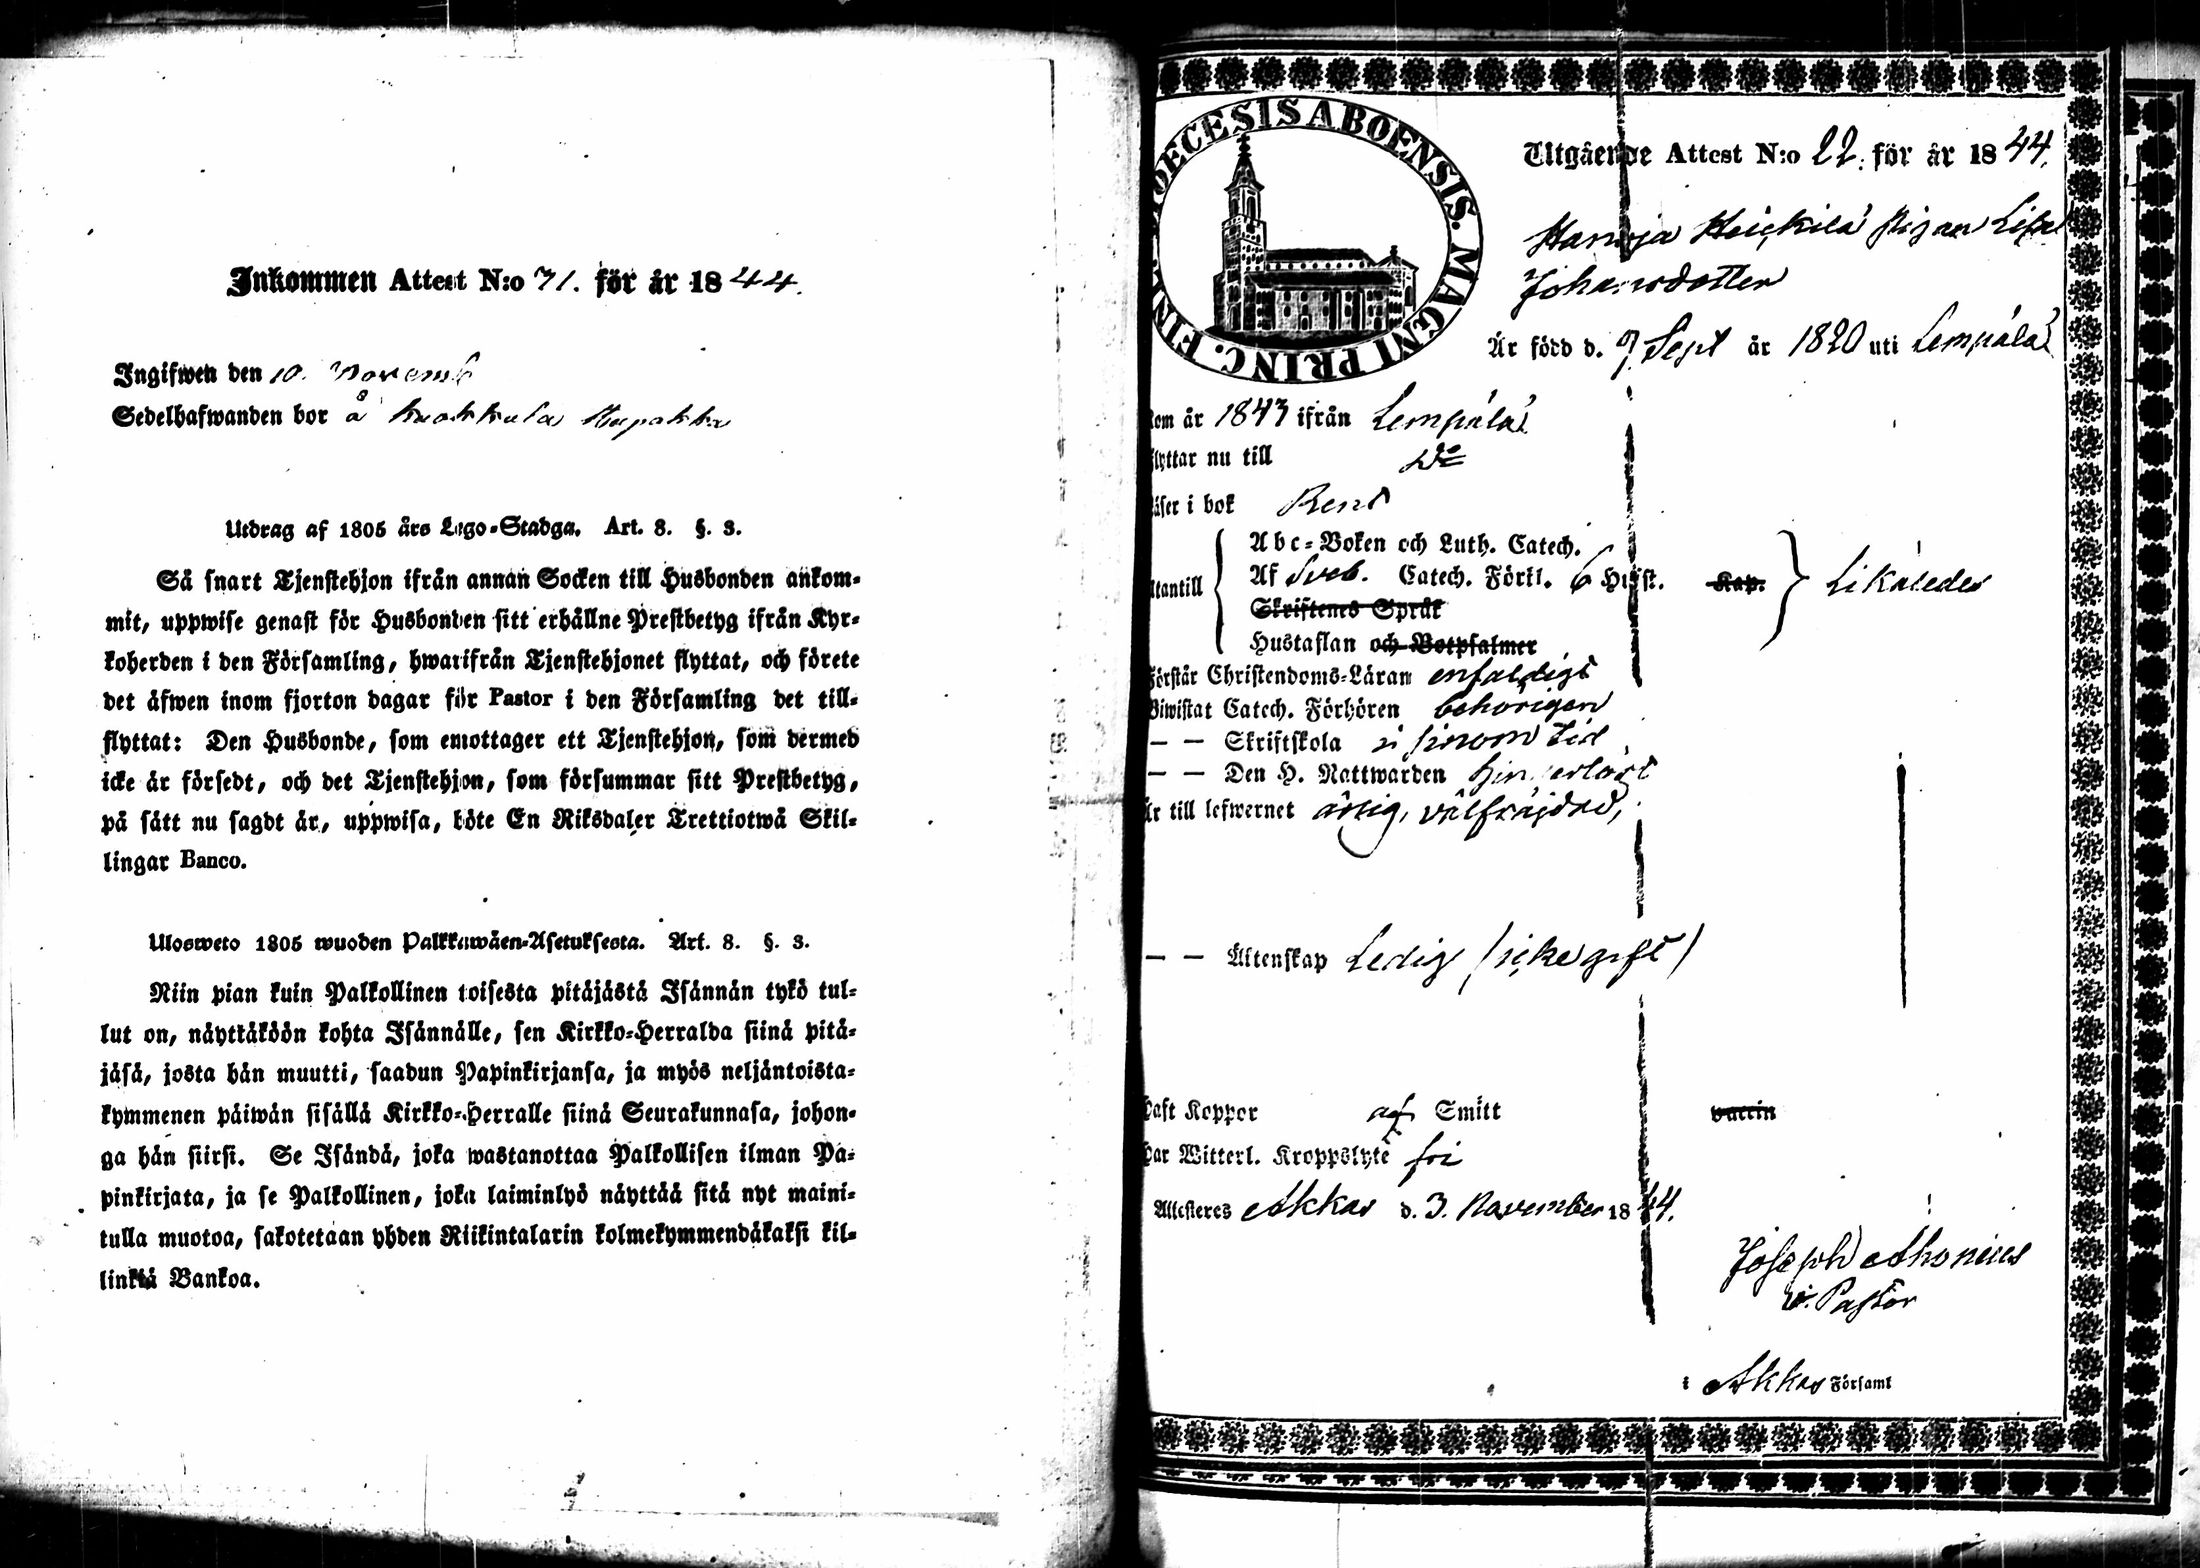 Inkommen Attest N:o 71. för år 1844.
Ingifwen den 10. Novemb
Sedelhafwanden bor å Kuokkala
Utdrag af 1805 års Lego-Stadga. Art. 8. §. 3.
Så snart Tjenstehjon ifrån annan Socken till Husbonden ankom-
mit, uppwise genast för Husbonden sitt erhållne Prestbetyg ifrån Kyr-
koherden i den Församling, hwarifrån Tjenstehjonet flyttat, och förete
det äfwen inom fjorton dagar för Pastor i den Församling det till-
flyttat: Den Husbonde, som emottager ett Tjenstehjon, som dermed
icke är försedt, och det Tjenstehjon, som försummar sitt Prestbetyg,
på sätt nu sagdt är, uppwisa, böte En Riksdaler Trettiotwå Skil-
lingar Banco.
Ulosweto 1805 wuoden Palkkawäen-Asetuksesta. Art. 8. §. 3.
Niin pian kuin Palkollinen toisesta pitäjästä Isännän tykö tul-
lut on, näyttäköön kohta Isännälle, sen Kirkko-Herralda siinä pitä-
jäsä, josta hän muutti, saadun Papinkirjansa, ja myös neljäntoista-
kymmenen päiwän sisällä Kirkko-Herralle siinä Seurakunnasa, johon-
ga hän siirsi. Se Isändä, joka wastanottaa Palkollisen ilman Pa-
pinkirjata, ja se Palkollinen, joka laiminlyö näyttää sitä nyt maini-
tulla muotoa, sakotetaan yhden Riikintalarin kolmekymmendäkaksi kil-
linkiä Bankoa.
DIOECESIS ABOENSIS. MAGNI PRINC. FINL.
Utgående Attest N:o 22. för år 1844.
Heickilä Pigan Lisa
Johansdotter
Är född d. 7 Sept år 1820 uti Lempälä
Kom år 1843 ifrån Lempälä
Flyttar nu till Do
Läser i bok Rent
Abc-Boken och Luth. Catech.
Utantill Af Sveb. Catech. Förkl. 6 Hufst. Kap. Likaledes
Skriftenes Språk
Hustaflan och Botpsalmer
Förstår Christendoms-Läran enfaldigt
Biwistat Catech. Förhören behörigen
— — Skriftskola i sinom tid
— — Den H. Nattwarden
Är till lefwernet ärlig, välfräjdad,
— — Äktenskap Ledig (icke gift)
Haft Koppor af Smitt vaccin
Har Witterl. Kroppslyte fri
Attesteres Akkas d. 3. November 1844.
Joseph Ahonius
v. Pastor
i Akkas Församl